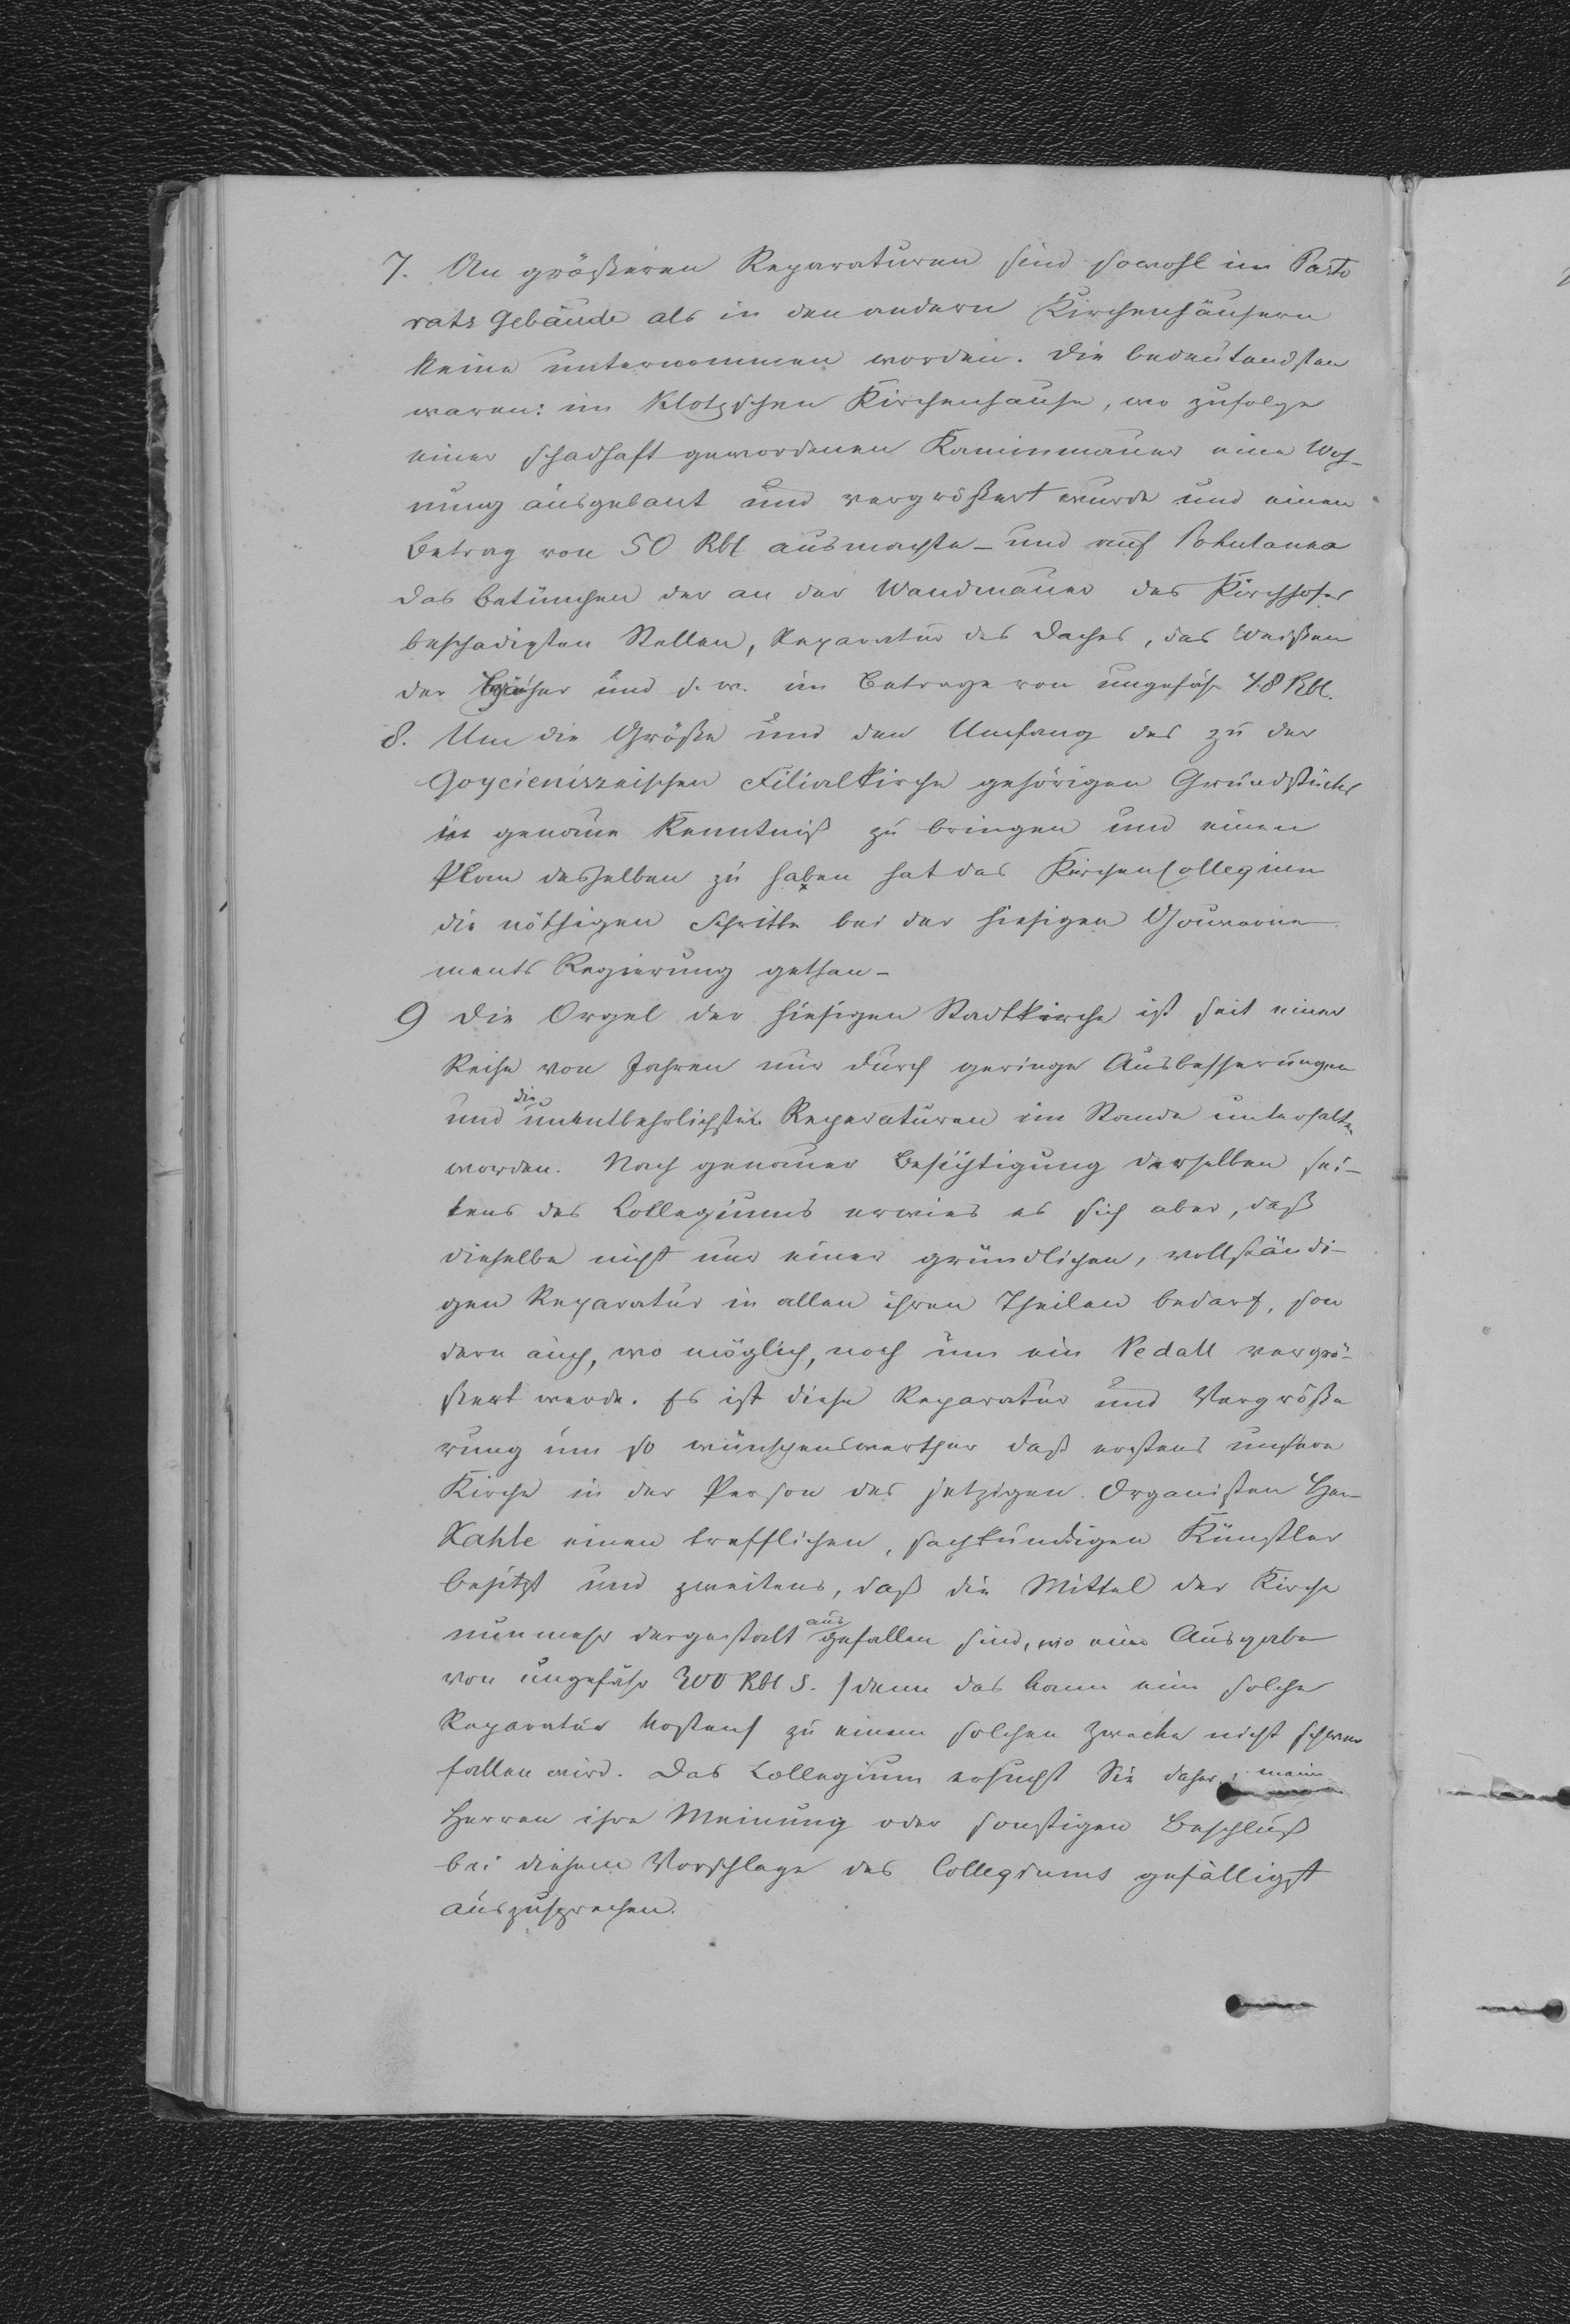 7. An größeren Reparaturen sind sowohl im Pasto
rats Gebäude als in den andern Kirchenhäusern
keine unternommen worden. Die bedeutendsten
waren: im Klotzschen Kirchenhause, wo zufolge
einer schadhaft gewordenen Kaminmauer eine Woh-
nung ausgebaut und vergrößert wurde und einen
Betrag von 50 Rbl ausmachte - und auf Pohulanka
das Betünchen der an der Wandmauer des Kirchhofes
beschädigten Stellen, Reparatur des Daches, das Weißen
der und s. w. im Betrage von ungefähr 48 Rbl.
8. Um die Größe und den Umfang des zu der
Goycieniszkischen Filialkirche gehörigen Grundstücks
in genaue Kenntniß zu bringen und einen
Plan desselben zu haben hat das Kirchencollegium
die nöthigen Schritte bei der hiesigen Gouverne
ments Regierung gethan -
9 Die Orgel der hiesigen Stadtkirche ist seit einer
Reihe von Jahren nur durch geringe Ausbesserungen
und die unentbehrlichsten Reparaturen im Stande unterhalten
worden. Nach genauer Besichtigung derselben sei-
tens des Collegiums erwies es sich aber, daß
dieselbe nicht nur einer gründlichen, vollständi-
gen Reparatur in allen ihren Theilen bedarf, son
dern auch, wo möglich, noch um ein Pedall vergrö-
ßert werde. Es ist diese Reparatur und Vergröße
rung um so wünschenswerther daß erstens unsere
Kirche in der Person des jetzigen Organisten Her
Kahle einen trefflichen, sachkundigen Künstler
besitzt und zweitens, daß die Mittel der Kirche
nunmehr dergestalt ausgefallen sind, wo eine Ausgabe
von ungefähr 300 Rbl S. (denn das kann eine solche
Reparatur kosten) zu einem solchen Zwecke nicht schwer
fallen wird. Das Collegium ersucht Sie daher, meine
Herren ihre Meinung oder sonstigen Beschluß
bei diesem Vorschlage des Collegiums gefälligst
auszusprechen.